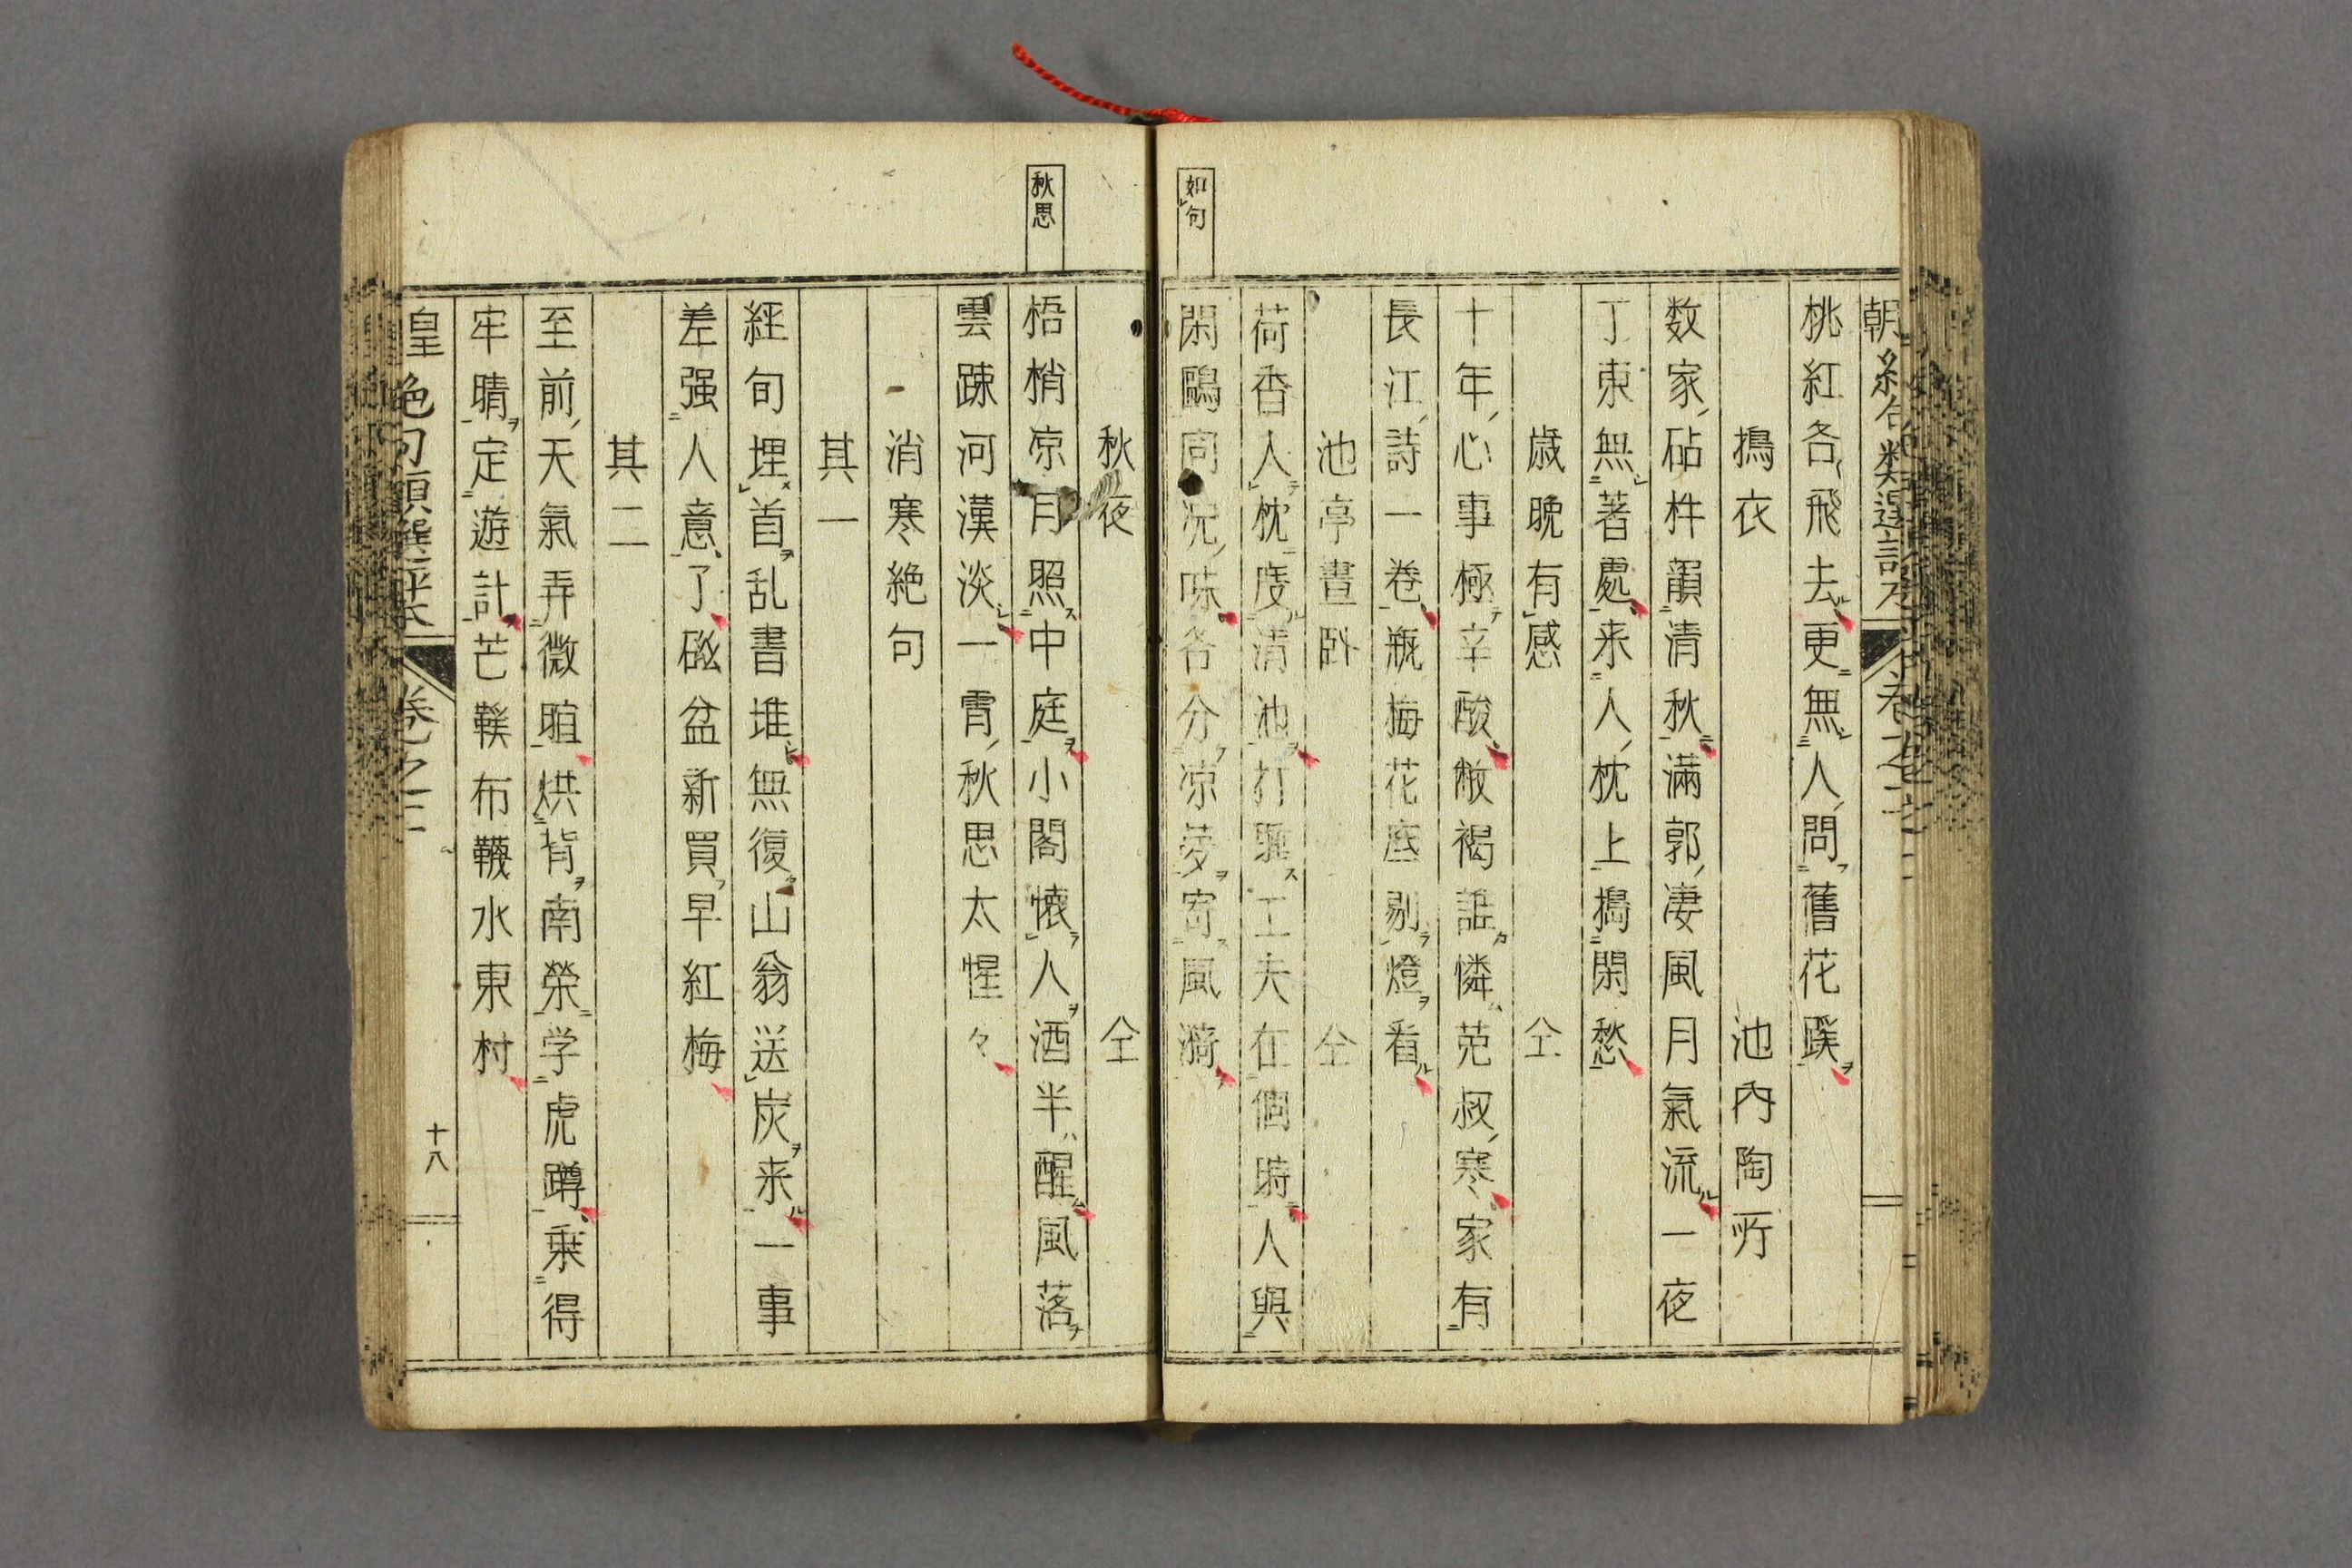 如句
桃紅各飛去更無人問舊花蹊
擣衣 池内陶所
数家砧杵韻清秋滿郭凄風月氣流一夜
丁東無著處来人枕上擣閑愁
歳晩有感 仝
十年心事極辛酸敝褐誰憐范叔寒家有
長江詩一卷瓶梅花底剔燈看
池亭晝臥 仝
荷香人枕度清池打睡工夫在個時人與
閑鷗同況味各分凉夢寄風漪
秋思
秋夜 仝
梧梢凉月照中庭小閣懐人酒半醒風落
雲踈河漢淡一霄秋思太惺々
消寒絶句
其一
経旬埋首乱書堆無復山翁送炭来一事
差强人意了磁盆新買早紅梅
其二
至前天氣弄微暄烘背南榮学虎蹲乗得
牢晴定遊計芒鞵布韈水東村
卷之二
十八